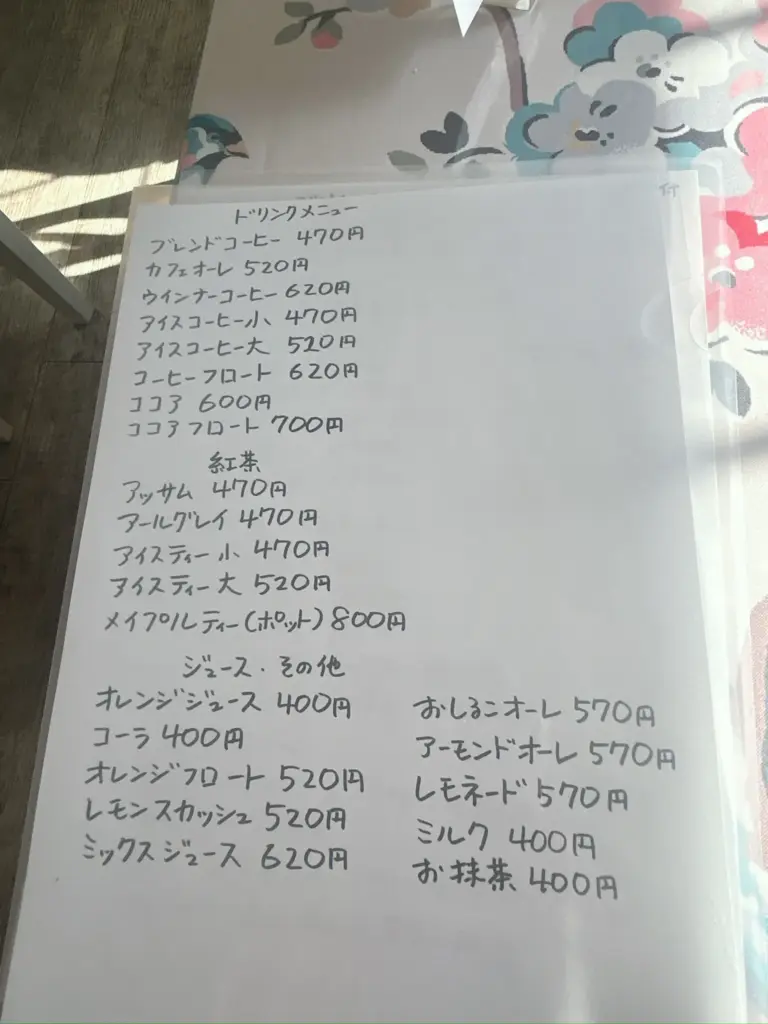 ドリンクメニュー
ブレンドコーヒー 470円
カフェオーレ 520円
ウインナーコーヒー 620円
アイスコーヒー小 470円
アイスコーヒー大 520円
コーヒーフロート 620円
ココア 600円
ココアフロート 700円
紅茶
アッサム 470円
アールグレイ 470円
アイスティー小 470円
アイスティー大 520円
メイプルティー(ポット) 800円
ジュース・その他
オレンジジュース 400円
コーラ 400円
オレンジフロート 520円
レモンスカッシュ 520円
ミックスジュース 620円
おしるこオーレ 570円
アーモンドオーレ 570円
レモネード 570円
ミルク 400円
お抹茶 400円